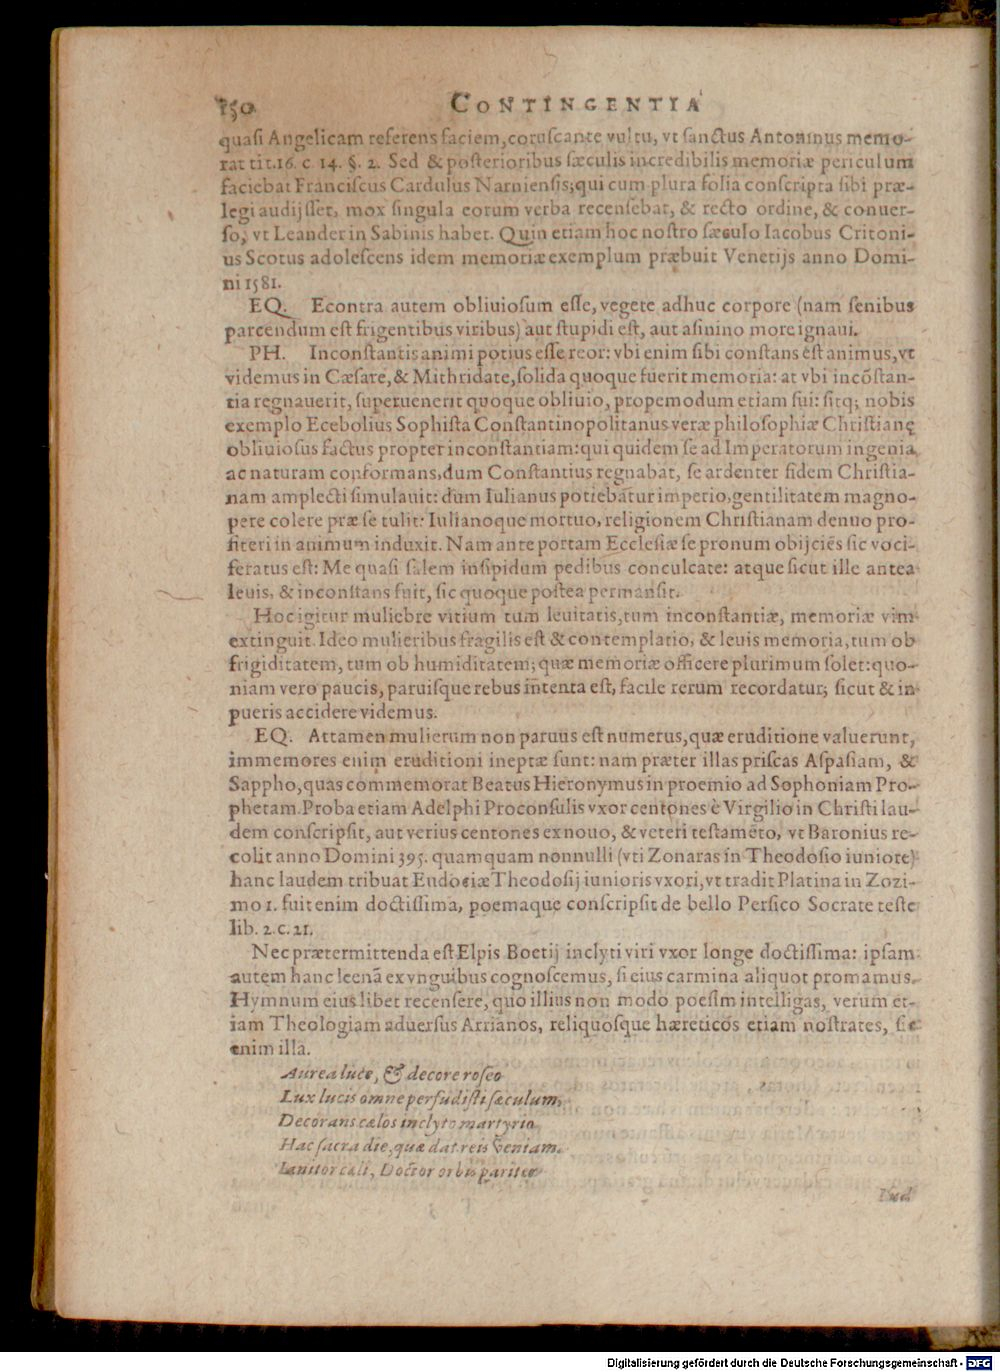 150 CONTINGENTIA
quasi Angelicam referens faciem, coruscante vultu, vt sanctus Antoninus memo-
rat tit. 16. c. 14. §. 2. Sed & posterioribus sæculis incredibilis memoriæ periculum
faciebat Franciscus Cardulus Narniensis; qui cum plura folia conscripta sibi præ-
legi audijsset, mox singula eorum verba recensebat, & recto ordine, & conuer-
so, vt Leander in Sabinis habet. Quin etiam hoc nostro sæculo Iacobus Critoni-
us Scotus adolescens idem memoriæ exemplum præbuit Venetijs anno Domi-
ni 1581.
EQ. Econtra autem obliuiosum esse, vegete adhuc corpore (nam senibus
parcendum est frigentibus viribus) aut stupidi est, aut asinino more ignaui.
PH. Inconstantis animi potius esse reor: vbi enim sibi constans est animus, vt
videmus in Cæsare, & Mithridate, solida quoque fuerit memoria: at vbi incõstan-
tia regnauerit, superuenerit quoque obliuio, propemodum etiam sui: sitq; nobis
exemplo Ecebolius Sophista Constantinopolitanus veræ philosophiæ Christianę
obliuiosus factus propter inconstantiam: qui quidem se ad Imperatorum ingenia
ac naturam conformans, dum Constantius regnabat, se ardenter fidem Christia-
nam amplecti simulauit: dum Iulianus potiebatur imperio, gentilitatem magno-
pere colere præ se tulit: Iulianoque mortuo, religionem Christianam denuo pro-
fiteri in animum induxit. Nam ante portam Ecclesiæ se pronum obijciēs sic voci-
feratus est: Me quasi salem insipidum pedibus conculcate: atque sicut ille antea
leuis, & inconstans fuit, sic quoque postea permansit.
Hoc igitur muliebre vitium tum leuitatis, tum inconstantiæ, memoriæ vim
extinguit. Ideo mulieribus fragilis est & contemplatio, & leuis memoria, tum ob
frigiditatem, tum ob humiditatem; quæ memoriæ officere plurimum solet: quo-
niam vero paucis, paruisque rebus intenta est, facile rerum recordatur; sicut & in
pueris accidere videmus.
EQ. Attamen mulierum non paruus est numerus, quæ eruditione valuerunt,
immemores enim eruditioni ineptæ sunt: nam præter illas priscas Aspasiam, &
Sappho, quas commemorat Beatus Hieronymus in proemio ad Sophoniam Pro-
phetam. Proba etiam Adelphi Proconsulis vxor centones è Virgilio in Christi lau-
dem conscripsit, aut verius centones ex nouo, & veteri testamēto, vt Baronius re-
colit anno Domini 395. quamquam nonnulli (vti Zonaras in Theodosio iuniore)
hanc laudem tribuat Eudociæ Theodosij iunioris vxori, vt tradit Platina in Zozi-
mo 1. fuit enim doctissima, poemaque conscripsit de bello Persico Socrate teste
lib. 2. c. 21.
Nec prætermittenda est Elpis Boetij inclyti viri vxor longe doctissima: ipsam
autem hanc leenā ex vnguibus cognoscemus, si eius carmina aliquot promamus.
Hymnum eius libet recensere, quo illius non modo poesim intelligas, verum et-
iam Theologiam aduersus Arrianos, reliquosque hæreticos etiam nostrates, sic
enim illa.
Aurea luce, & decore roseo
Lux lucis omne perfudisti sæculum,
Decorans cælos inclyto martyrio
Hac sacra die, quæ dat reis veniam.
Ianitor cæli, Doctor orbis pariter
Iud
Digitalisierung gefördert durch die Deutsche Forschungsgemeinschaft - DFG